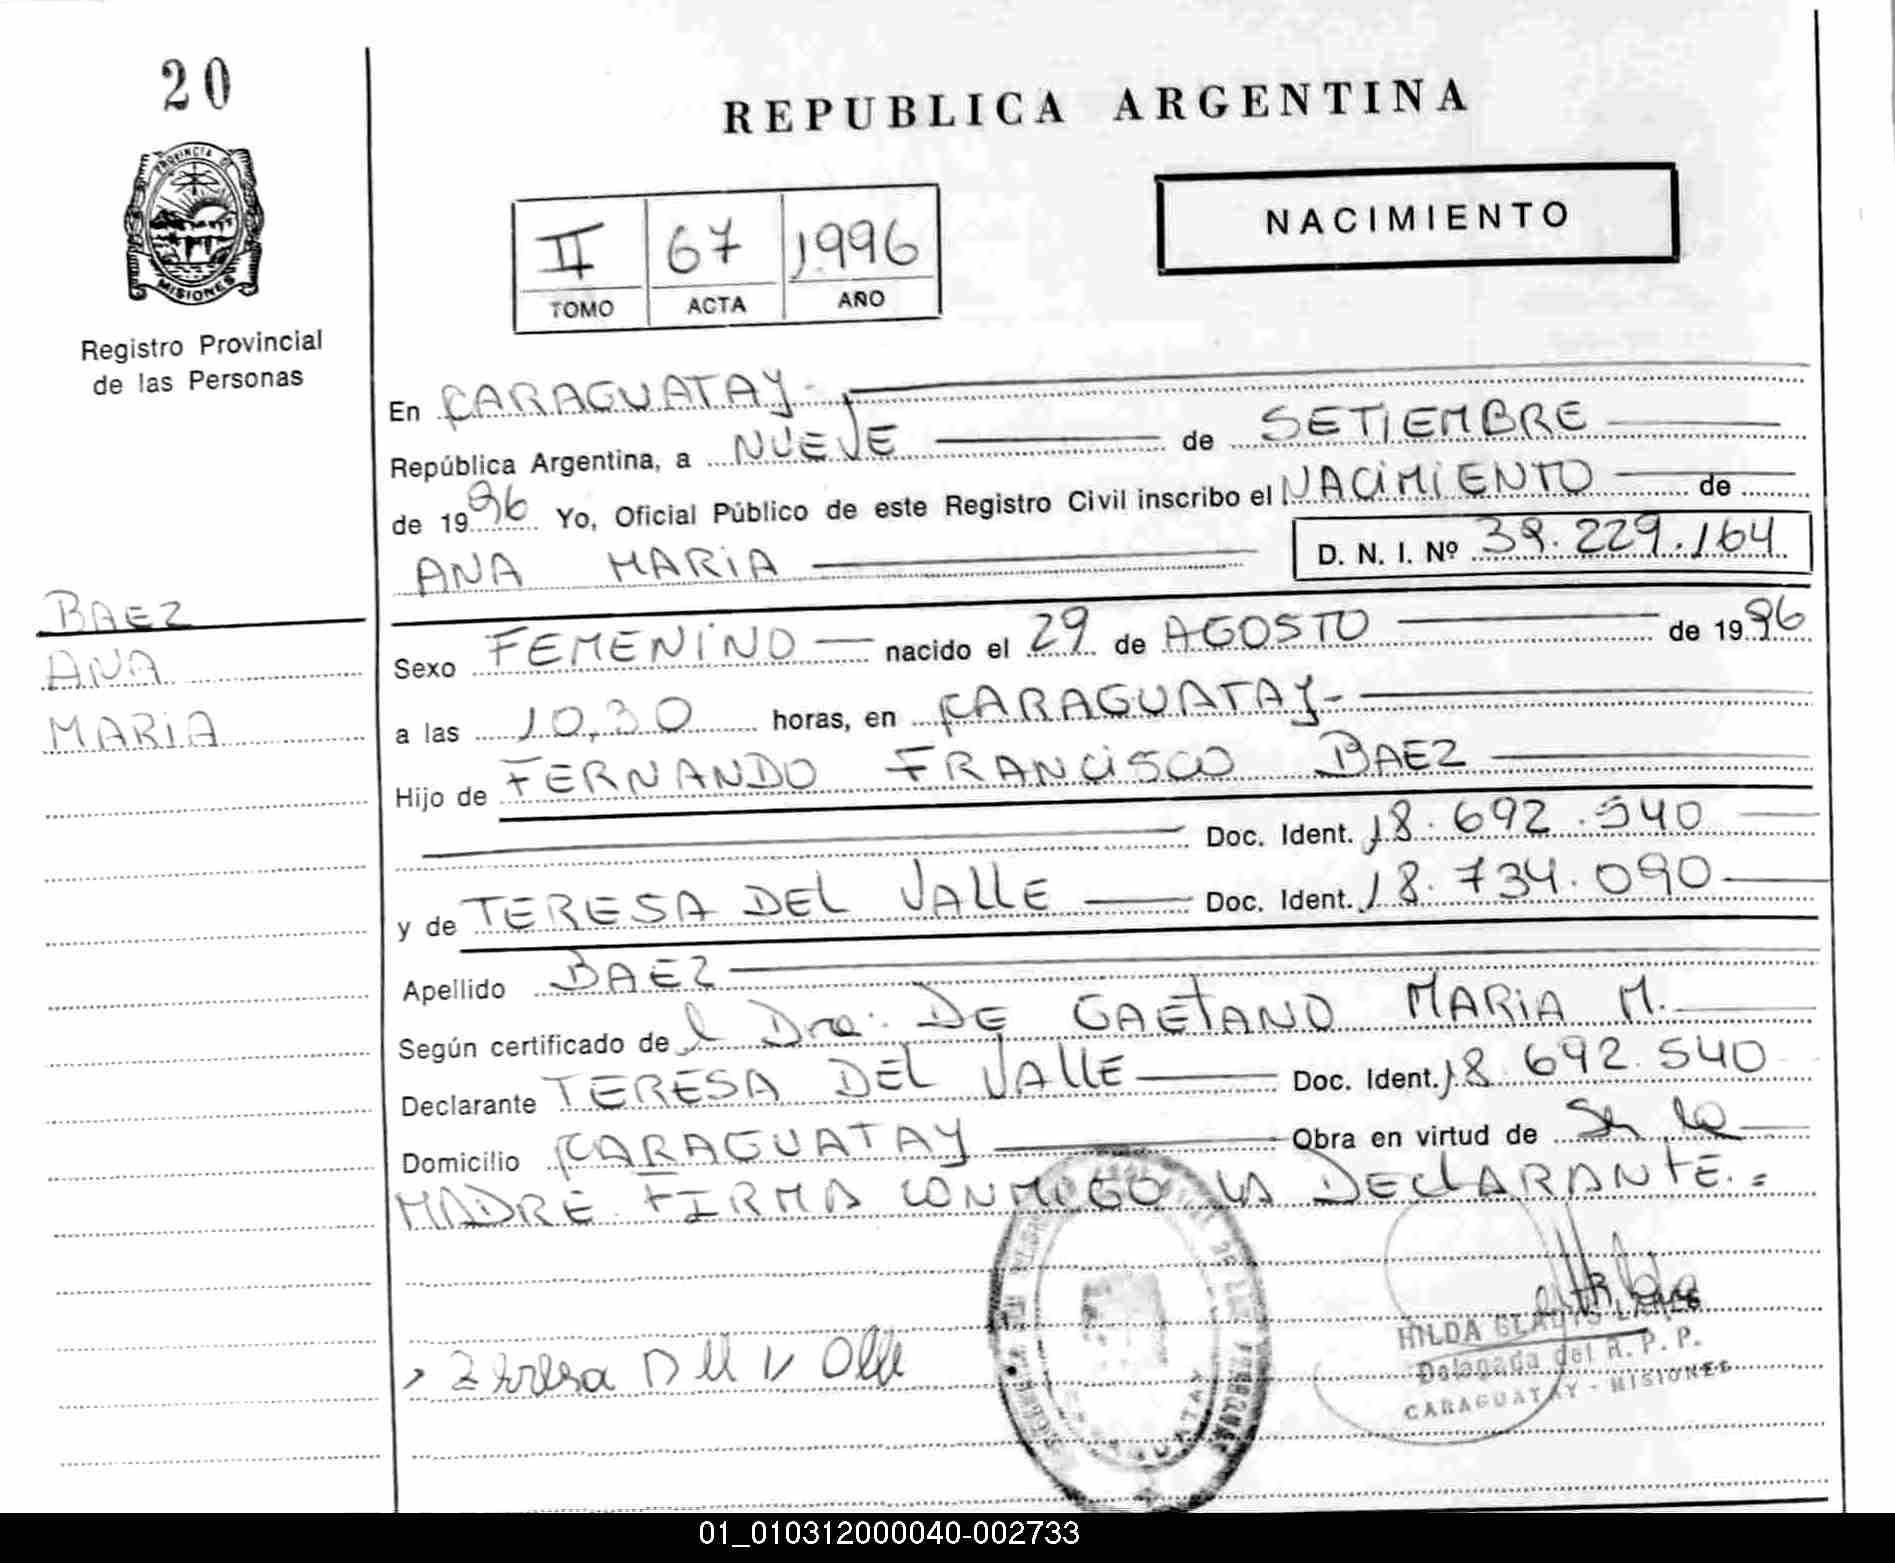 20
PROVINCIA D
MISIONES
Registro Provincial
de las Personas
BAEZ
ANA
MARIA
REPUBLICA ARGENTINA
NACIMIENTO
II 67 1996
TOMO ACTA AÑO
En CARAGUATAY.
República Argentina, a NUEVE de SETIEMBRE
de 1996 Yo, Oficial Público de este Registro Civil inscribo el NACIMIENTO de
ANA MARIA D. N. I. Nº 39.229.164
Sexo FEMENINO nacido el 29 de AGOSTO de 1996
a las 10,30 horas, en CARAGUATAY-
Hijo de FERNANDO FRANCISCO BAEZ
Doc. Ident. 18.692.540
y de TERESA DEL VALLE Doc. Ident. 18.734.090
Apellido BAEZ
Según certificado de l Dra: DE GAETANO MARIA M.
Declarante TERESA DEL VALLE Doc. Ident. 18.692.540
Domicilio CARAGUATAY Obra en virtud de Ser la
MADRE. FIRMA CONMIGO LA DECLARANTE.=
HILDA GLADYS
Delegada del R. P. P.
CARAGUATAY - MISIONES
01_010312000040-002733